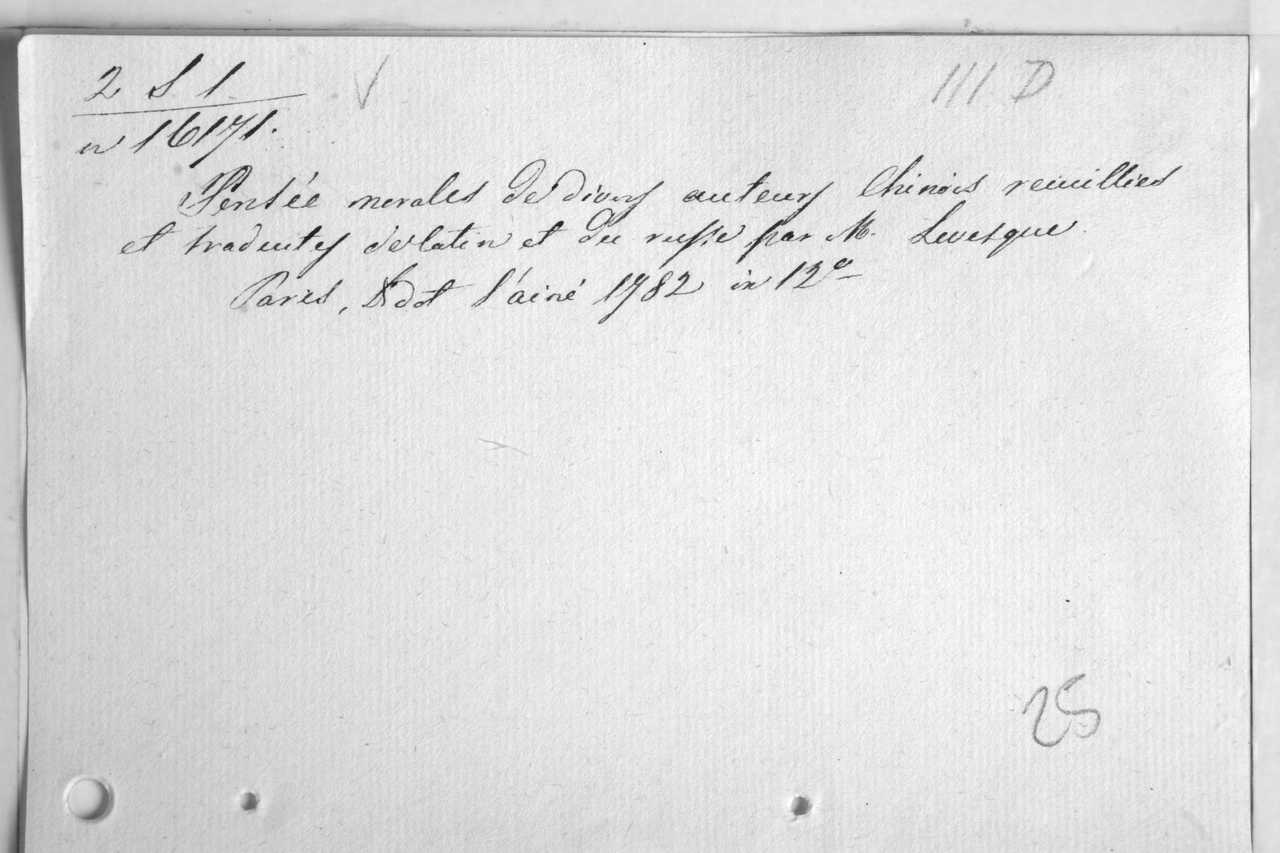 2 S 1. V III D
n 16171.
Pensée morales de divers auteurs Chinois recuillies
et traduites de latin et du russe par M. Levesque.
Paris, Didot l'ainé 1782 in 12o
25